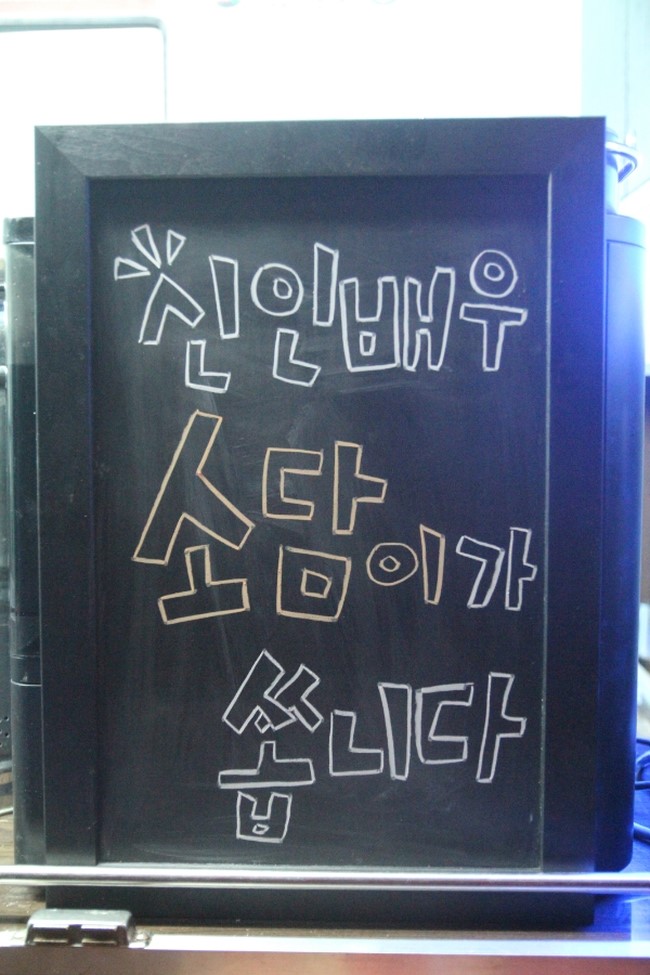 신인배우
소담이가
쏩니다